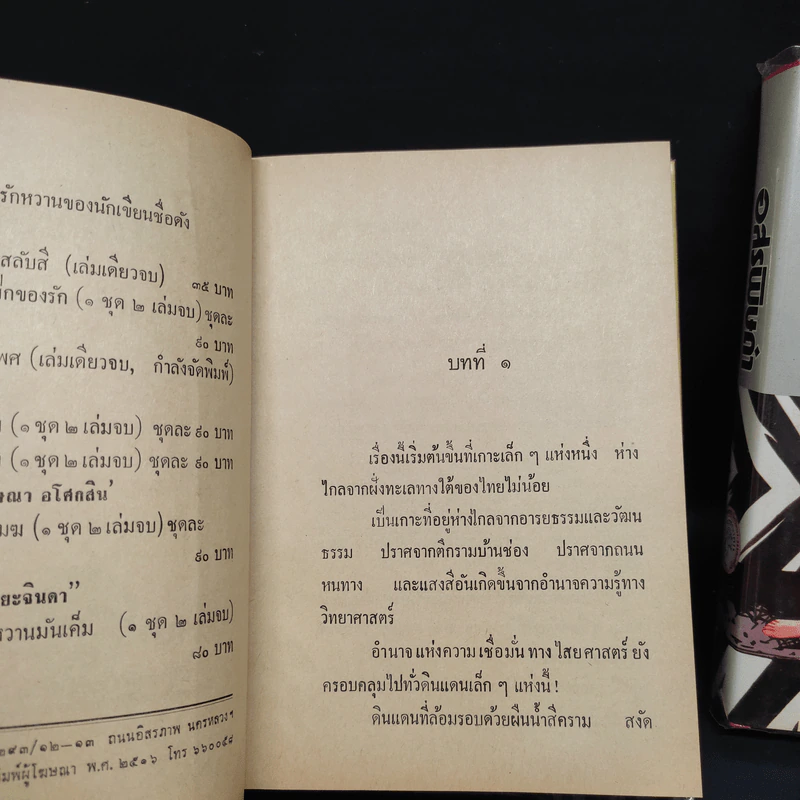 รักหวานของนักเขียนชื่อดัง
สลับสี (เล่มเดียวจบ) ๓๕ บาท
ของรัก (๑ ชุด ๒ เล่มจบ) ชุดละ
๙๐ บาท
(เล่มเดียวจบ, กำลังจัดพิมพ์)
(๑ ชุด ๒ เล่มจบ) ชุดละ ๙๐ บาท
(๑ ชุด ๒ เล่มจบ) ชุดละ ๙๐ บาท
อโศกสิน'
(๑ ชุด ๒ เล่มจบ) ชุดละ
๙๐ บาท
ยะจินดา"
หวานมันเค็ม (๑ ชุด ๒ เล่มจบ)
๘๐ บาท
๒๙๓/๑๒-๑๓ ถนนอิสรภาพ นครหลวงฯ
พิมพ์ผู้โฆษณา พ.ศ. ๒๕๑๖ โทร ๖๖๐๐๕๘
บทที่ ๑
เรื่องนี้เริ่มต้นขึ้นที่เกาะเล็ก ๆ แห่งหนึ่ง ห่าง
ไกลจากฝั่งทะเลทางใต้ของไทยไม่น้อย
เป็นเกาะที่อยู่ห่างไกลจากอารยธรรมและวัฒน
ธรรม ปราศจากตึกรามบ้านช่อง ปราศจากถนน
หนทาง และแสงสีอันเกิดขึ้นจากอำนาจความรู้ทาง
วิทยาศาสตร์
อำนาจแห่งความเชื่อมั่นทางไสยศาสตร์ ยัง
ครอบคลุมไปทั่วดินแดนเล็ก ๆ แห่งนี้ !
ดินแดนที่ล้อมรอบด้วยผืนน้ำสีคราม สงัด
อสรพิษดำ